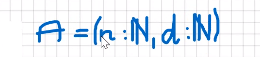 A = (n : ℕ, d : ℕ)